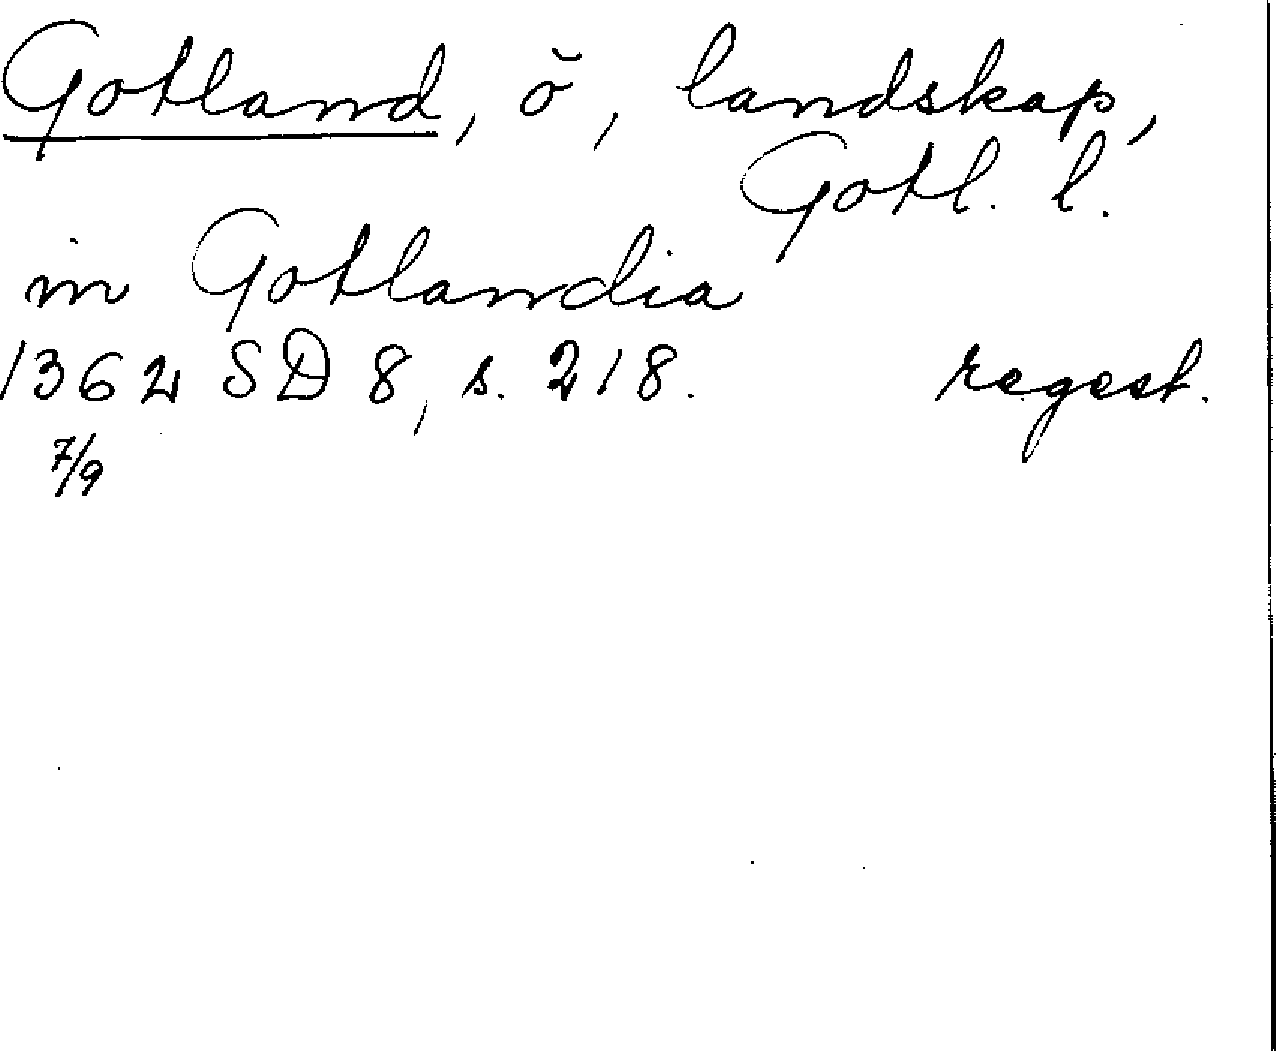 Gotland, ö, landskap,
Gotl. l.
in Gotlandia
1362 SD 8, s. 218. regest.
7/9